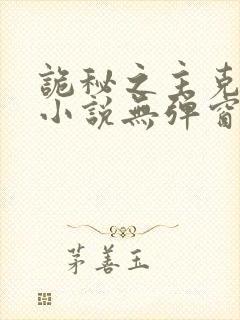 詭秘之主克
小說無彈窗
茅善玉